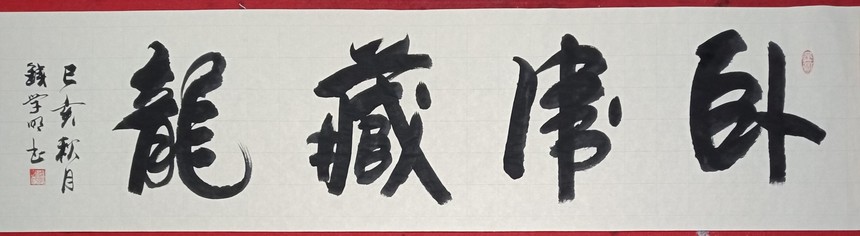 卧虎藏龍
己亥秋月
錢学明书